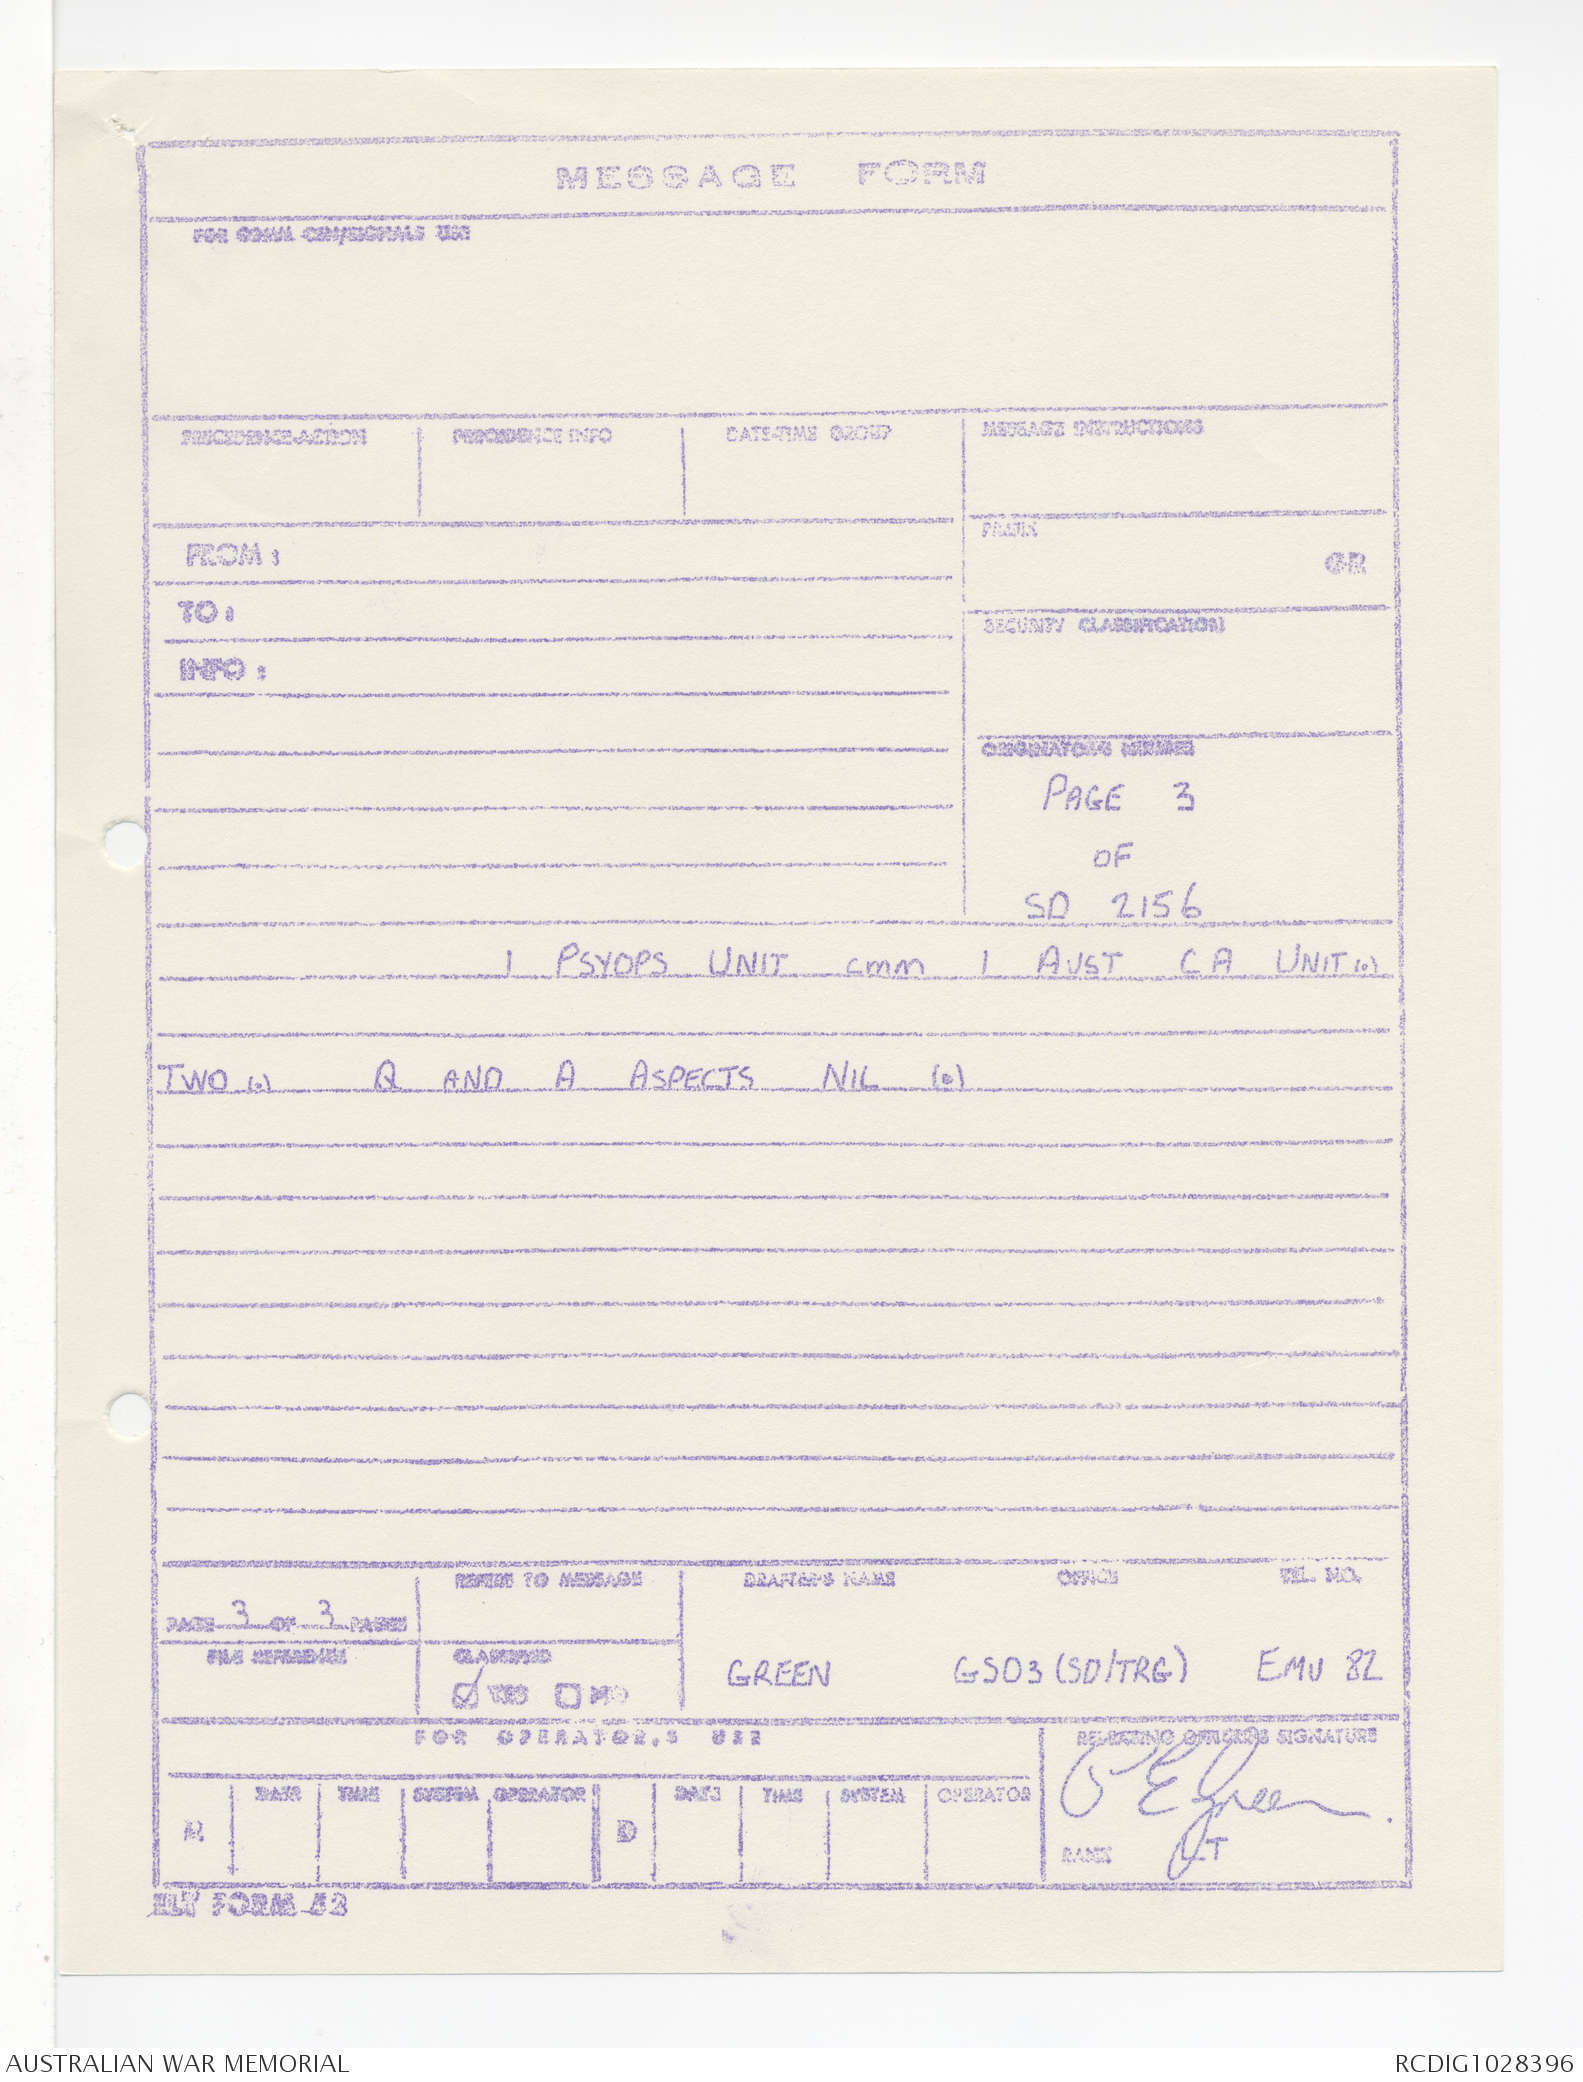 MESSAGE FORM
FOR COMM CEN/SIGNALS USE
PRECEDENCE-ACTION PRECEDENCE INFO DATE-TIME GROUP MESSAGE INSTRUCTIONS
FROM : PREFIX
GR
TO :
SECURITY CLASSIFICATION
INFO :
ORIGINATOR'S NUMBER
PAGE 3
OF
SD 2156
1 PSYOPS UNIT cmm 1 AUST CA UNIT (.)
TWO (.) Q AND A ASPECTS NIL (.)
REFERS TO MESSAGE DRAFTER'S NAME OFFICE TEL. NO.
PAGE 3 OF 3 PAGES
FILE REFERENCE CLASSIFIED
GREEN GSO3 (SD/TRG) EMU 82
YES NO
FOR OPERATOR,S USE RELEASING OFFICERS SIGNATURE
DATE TIME SYSTEM OPERATOR DATE TIME SYSTEM OPERATOR
R D
RANK LT
FORM 52
AUSTRALIAN WAR MEMORIAL RCDIG1028396